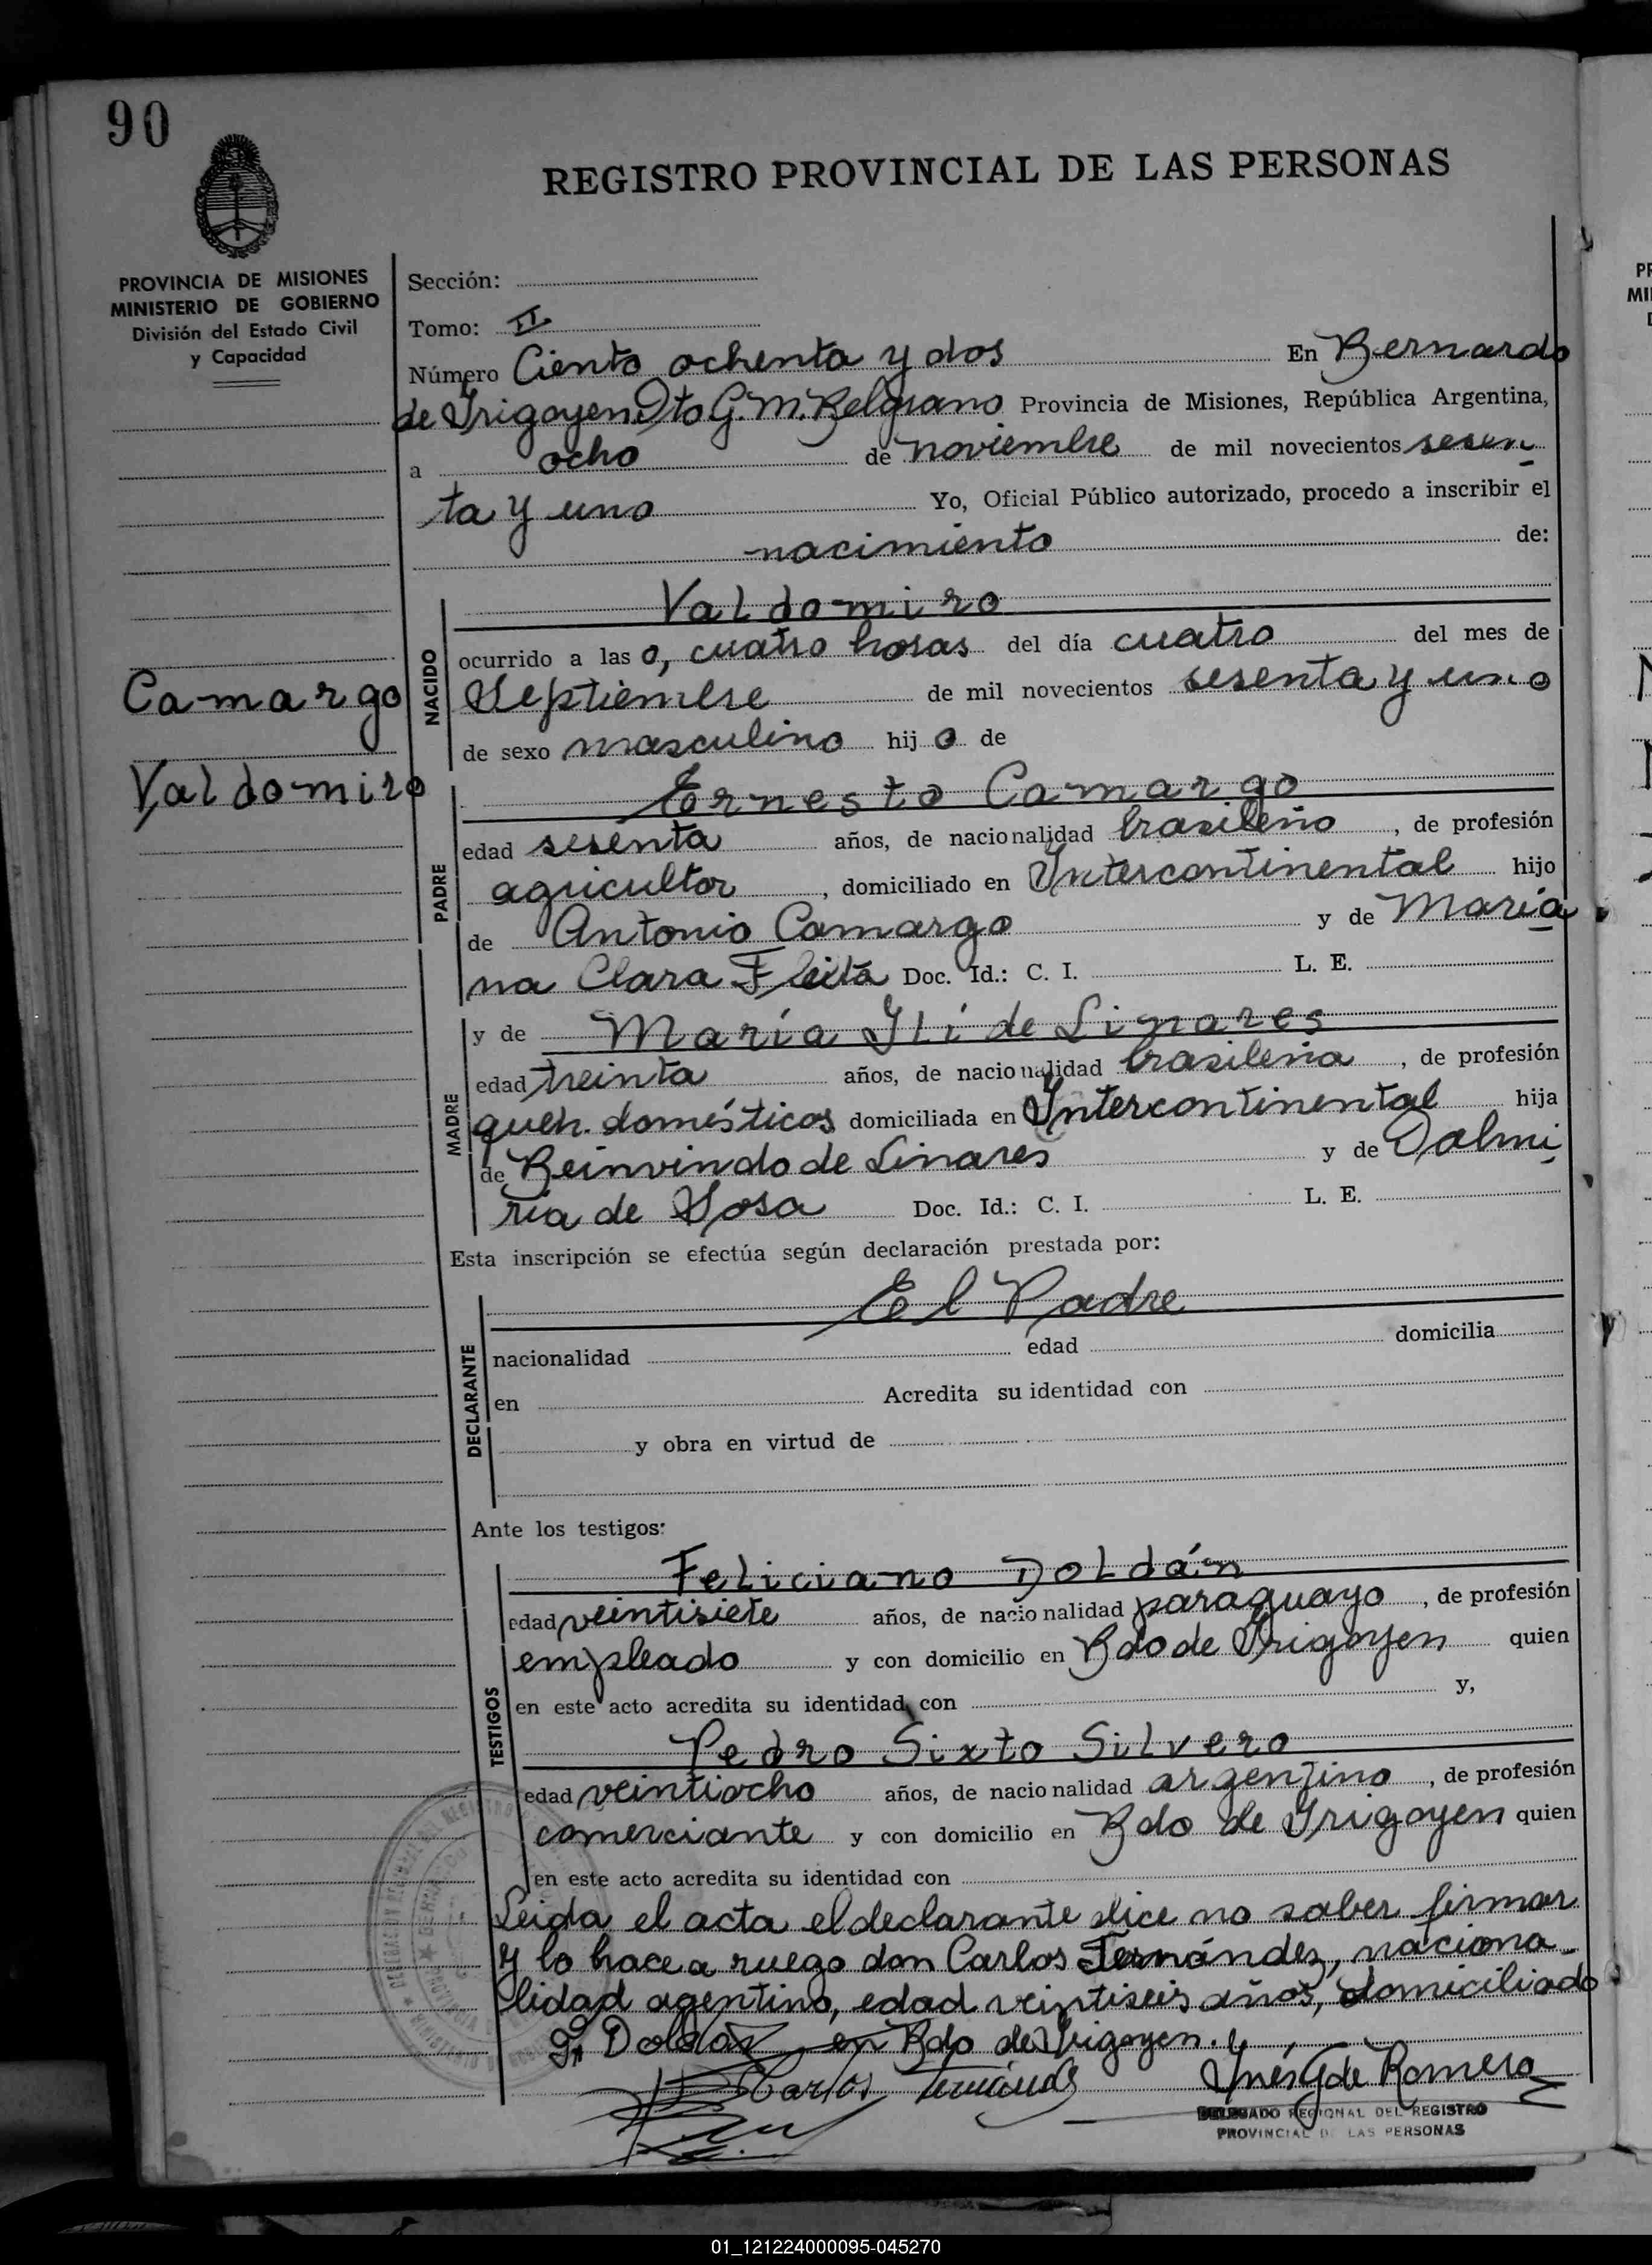 90
REGISTRO PROVINCIAL DE LAS PERSONAS
PROVINCIA DE MISIONES
MINISTERIO DE GOBIERNO
División del Estado Civil
y Capacidad
Camargo
Valdomiro
Sección:
Tomo: II
Número Ciento ochenta y dos En Bernardo
de Irigoyen Dto G. M. Belgrano Provincia de Misiones, República Argentina,
a ocho de noviembre de mil novecientos sesen
ta y uno Yo, Oficial Público autorizado, procedo a inscribir el
nacimiento de:
NACIDO
Valdomiro
ocurrido a las 0, cuatro horas del día cuatro del mes de
Septiembre de mil novecientos sesenta y uno
de sexo masculino hijo de
PADRE
Ernesto Camargo
edad sesenta años, de nacionalidad brasileño, de profesión
agricultor, domiciliado en Intercontinental hijo
de Antonio Camargo y de María
na Clara Fleita Doc. Id.: C. I. L. E.
MADRE
y de María Ilí de Linares
edad treinta años, de nacionalidad brasileña, de profesión
queh. domésticos domiciliada en Intercontinental hija
de Reinvindo de Linares y de Dalmi
ria de Sosa Doc. Id.: C. I. L. E.
Esta inscripción se efectúa según declaración prestada por:
DECLARANTE
El Padre
nacionalidad edad domicilia
en Acredita su identidad con
y obra en virtud de
Ante los testigos:
TESTIGOS
Feliciano Doldán
edad veintisiete años, de nacionalidad paraguayo, de profesión
empleado y con domicilio en Bdo de Irigoyen quien
en este acto acredita su identidad con y,
Pedro Sixto Silvero
edad veintiocho años, de nacionalidad argentino, de profesión
comerciante y con domicilio en Bdo de Irigoyen quien
en este acto acredita su identidad con
Leida el acta el declarante dice no saber firmar
y lo hace a ruego don Carlos Fernández, naciona
lidad agentino, edad veintiseis años, domiciliado
en Bdo de Irigoyen.
Carlos Fernández
Inés G de Romero
DELEGADO REGIONAL DEL REGISTRO
PROVINCIAL DE LAS PERSONAS
01_121224000095-045270